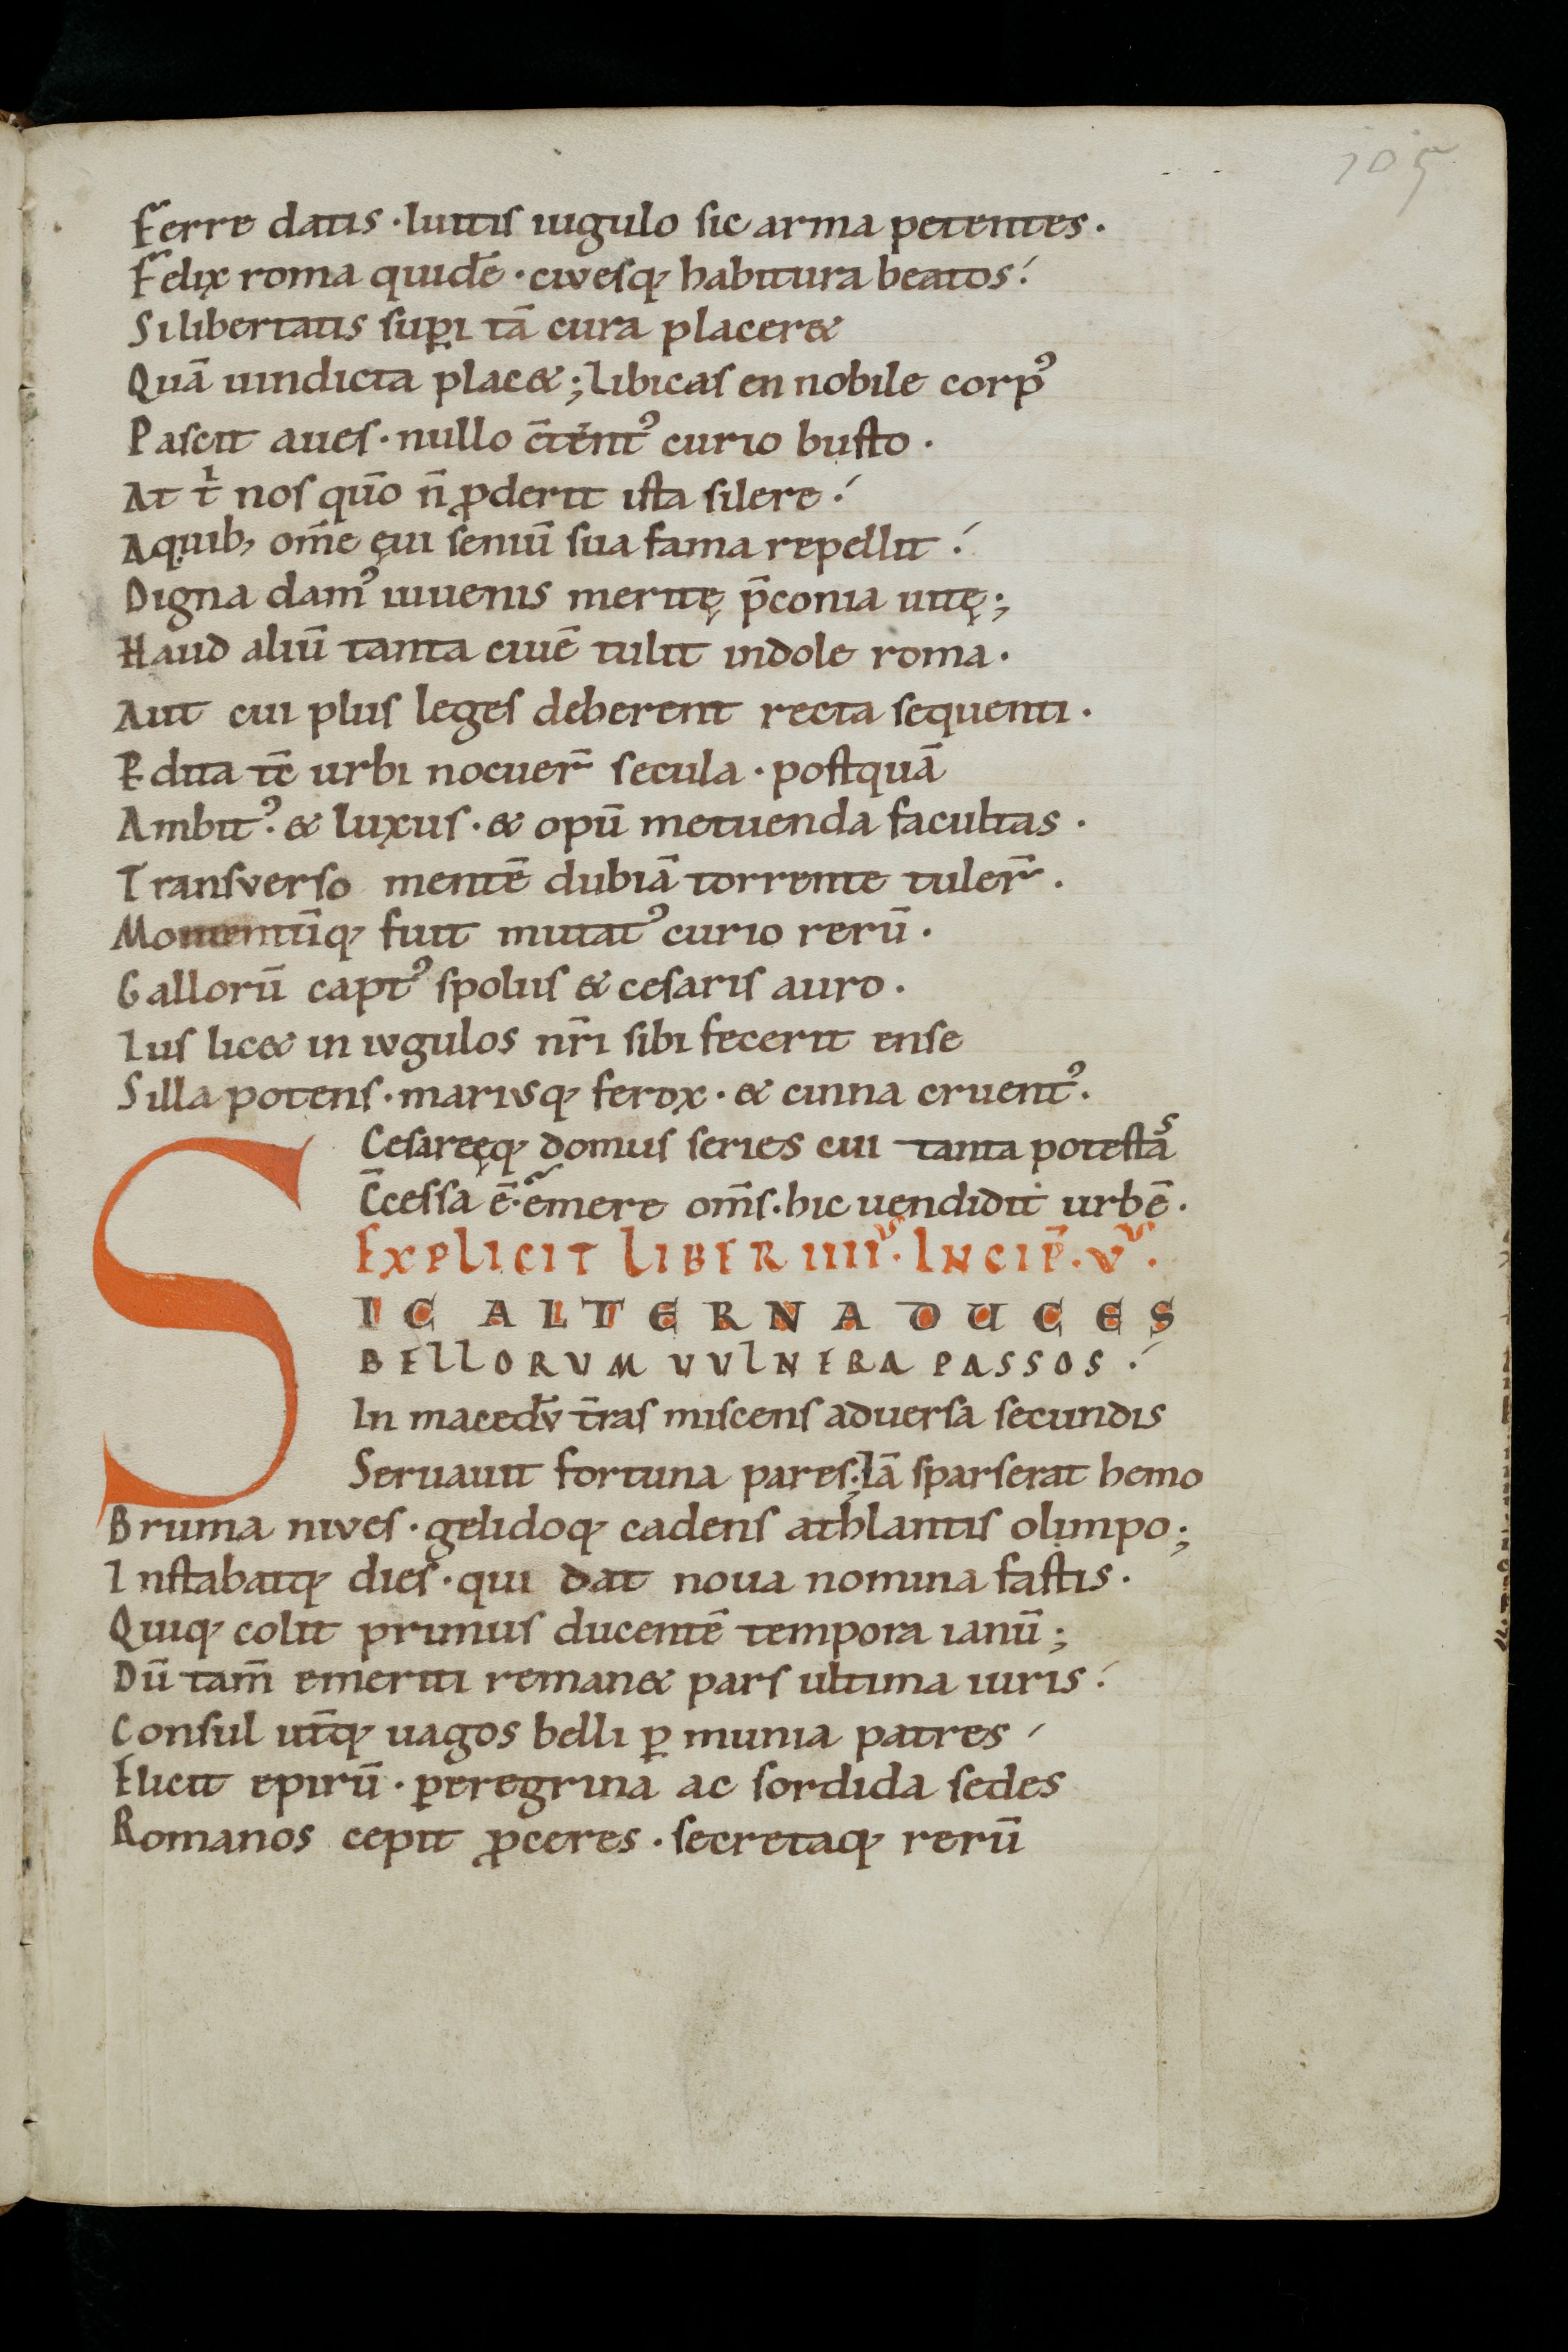 105
Ferre datis · luitis iugulo sic arma petentes ·
Felix roma quidē · ciuesq; habitura beatos:́
Si libertatis suꝑi tā cura placer&
Quā uindicta plac&; Libicas en nobile corpꝰ
Pascit aues · nullo c̄tēntꝰ curio busto ·
At t̄ⁱ nos qn̄o n̄ ꝓderit ista silere:́
Aquib; om̄e ęui seniū sua fama repellit:́
Digna damꝰ iuuenis meritę p̄conia uitę;
Haud aliū tanta ciuē tulit indole roma ·
Aut cui plus leges deberent recta sequenti ·
Pdita tc̄ urbi nocuer̄ secula · postquā
Ambitꝰ · & luxus · & opū metuenda facultas ·
Transuerso mentē dubiā torrente tuler̄ ·
Momentūq; fuit mutatꝰ curio rerū ·
Gallorū captꝰ spoliis & cesaris auro ·
Ius lic& in iugulos nr̄i sibi fecerit ense
Silla potens · mariusq; ferox · & cinna cruentꝰ ·
Cesareęq; domus series cui tanta potestas
C̄cessa ē · emere om̄s · hic uendidit urbē ·
EXPLICIT LIBER IIIIᵘˢ · INCIP̄ · Vᵘˢ ·
SIC ALTERNA DUCES
BELLORVM VVLNERA PASSOS:́
In macedū t̄ras miscens aduersa secundis
Seruauit fortuna pares; Iā sparserat hemo
Bruma niues · gelidoq; cadens athlantis olimpo;
Instabatq; dies · qui dat noua nomina fastis ·
Quiq; colit primus ducentē tempora ianū;
Dū tam̄ emeriti reman& pars ultima iuris:́
Consul ut̄q; uagos belli ꝑ munia patres ́
Elicit epirū · ꝑegrina ac sordida sedes
Romanos cepit ꝓceres · secretaq; rerū